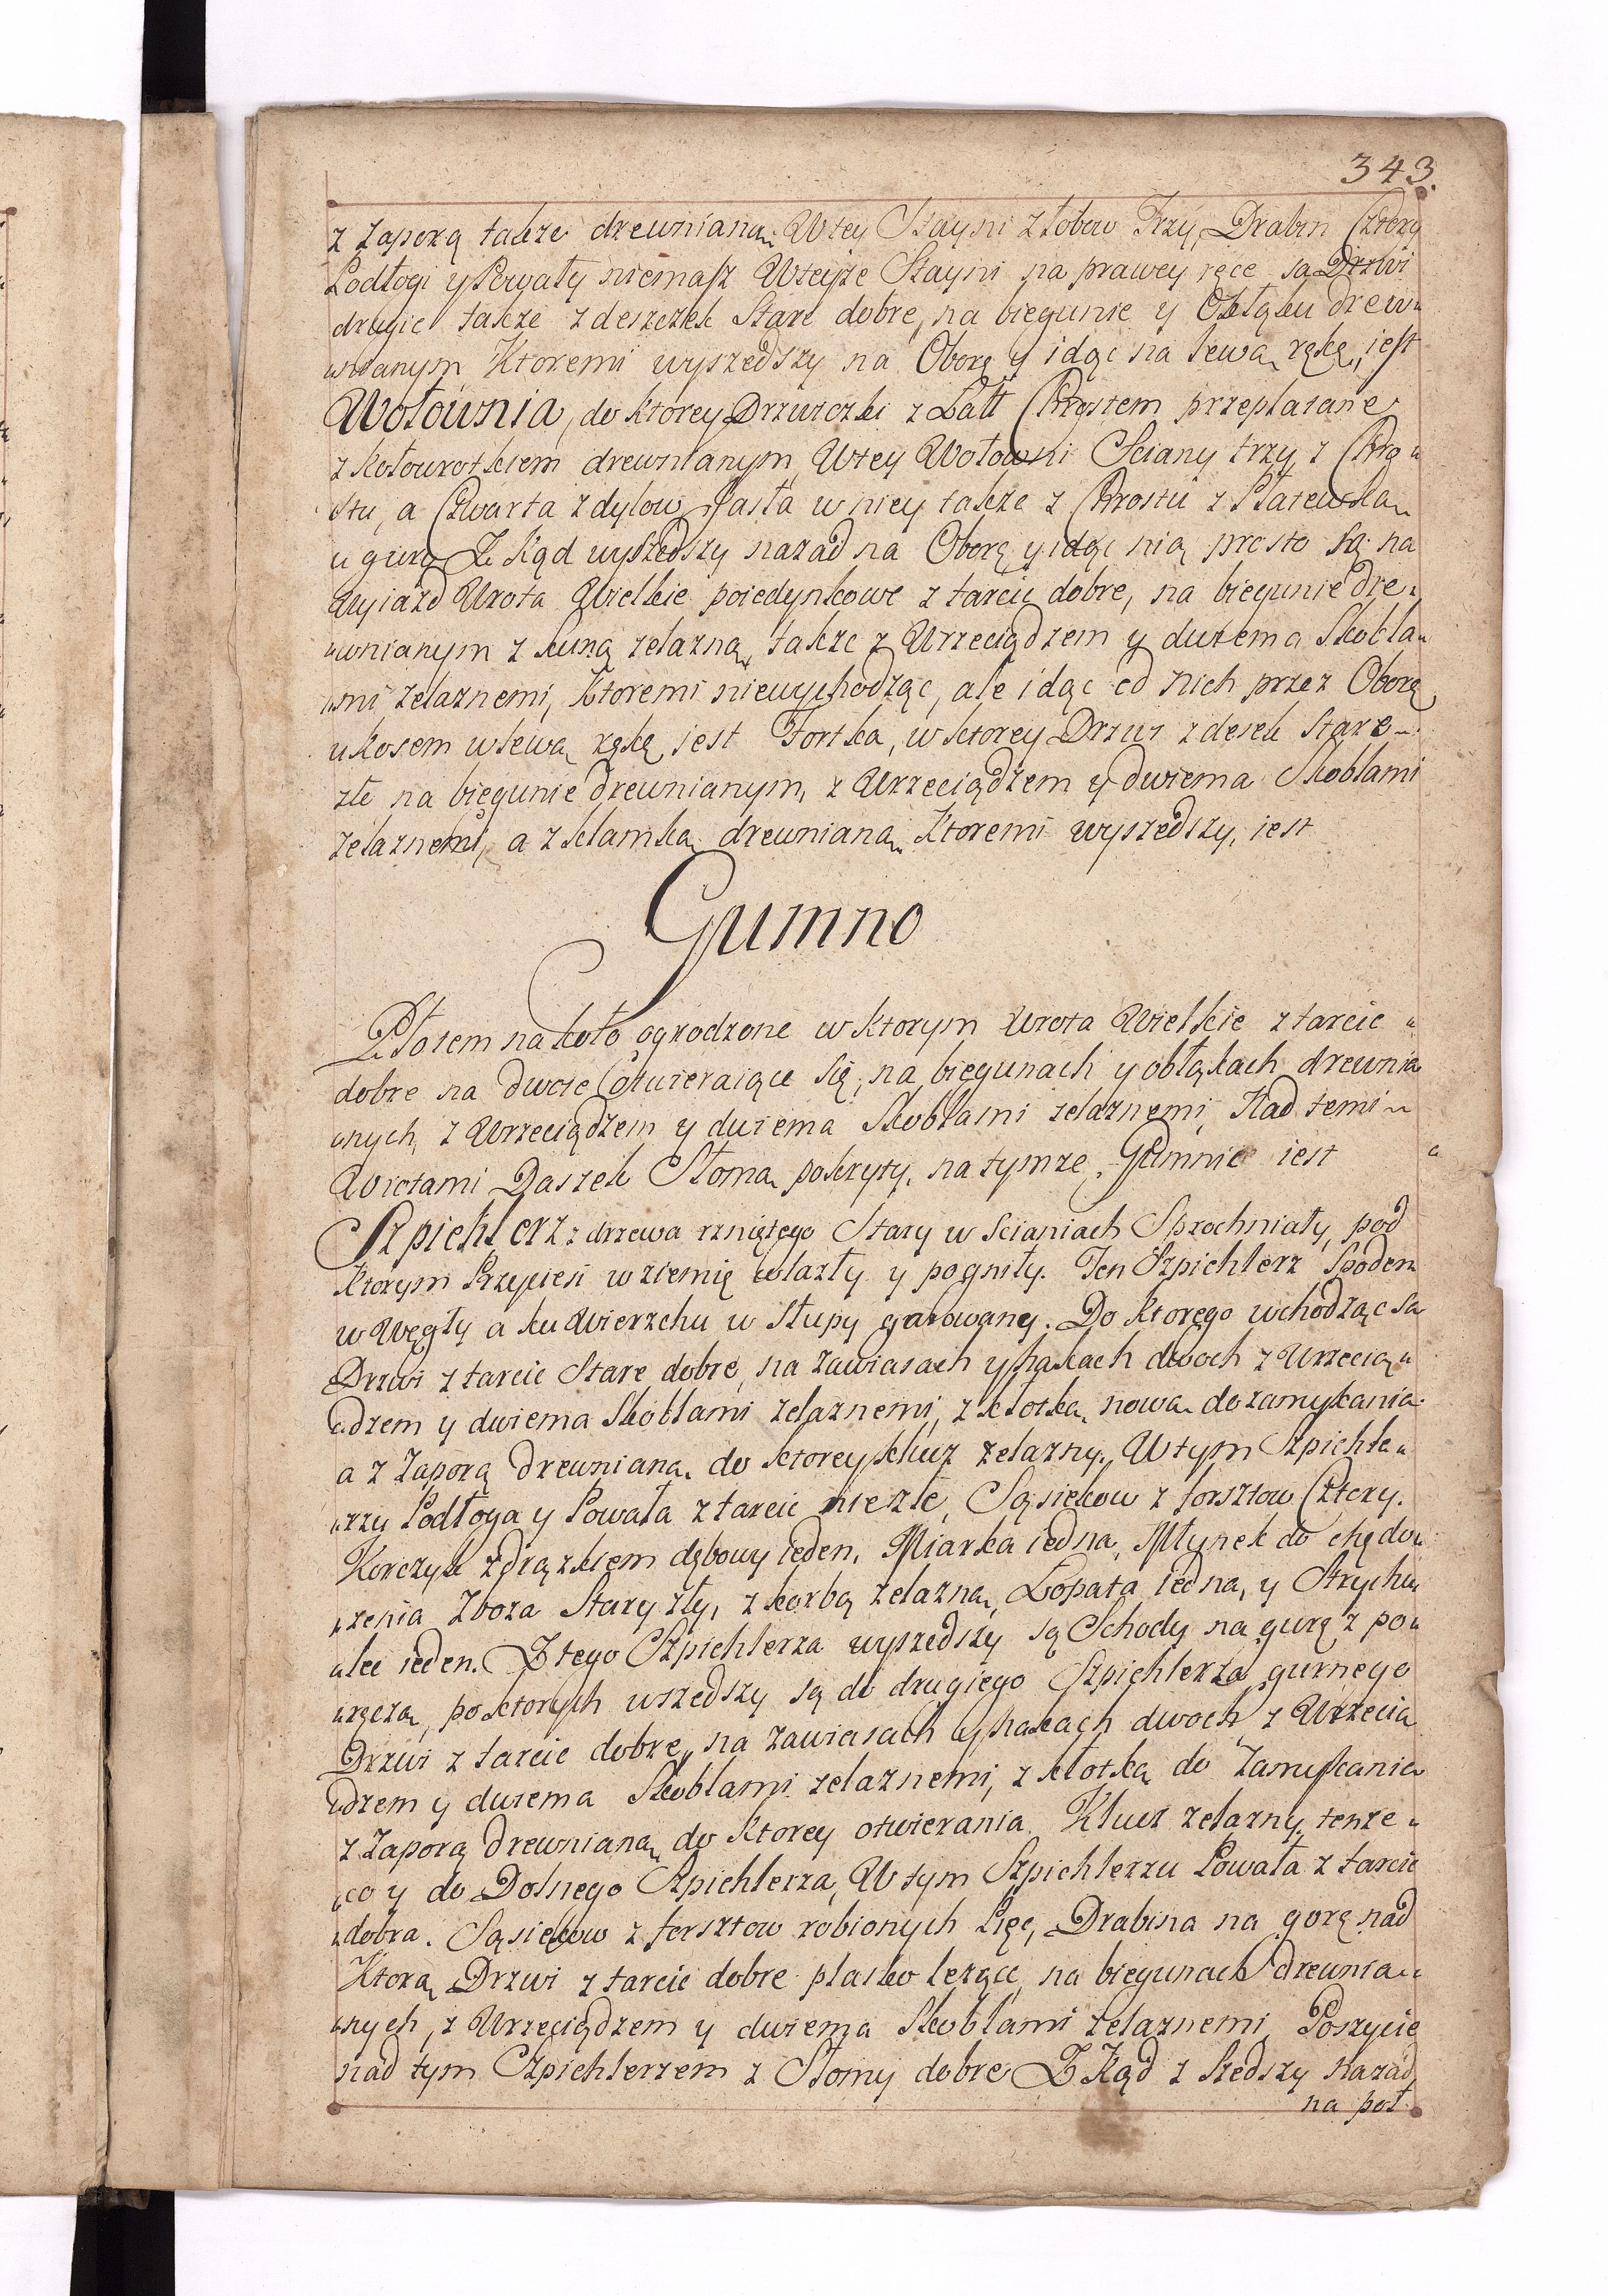 343.
z Zaporą takze drewnianą. Wtey Stayni Złobow Trzy, Drabin Cztery
Podłogi y Powały niemasz Wteyze Stayni na prawey ręce są Drzwi
drugie takze zdeszczek Stare dobre, na biegunie y Obłąku drew„
„nianym Ktoremi wyszedszy na Oborę y idąc na lewą rękę, iest
Wołownia, do ktorey Drzwiczki z Łatt Chrostem przeplatane
z Kołowrotkiem drewnianym, Wtey Wołowni Sciany trzy z Chro„
stu, a Czwarta z dylow, Jasła w niey takze z Chrostu z Płatewką
u gury Z Kąd wyszedszy nazad na Oborę y idąc nią prosto są na
Wyiazd Wrota Wielkie poiedynkowe z tarcic dobre, na biegunie dre„
„wnianym z kuną zelazną, takze z Wrzeciądzem y dwiema Skobla„
„mi zelaznemi, Ktoremi niewychodząc, ale idąc od nich przez Oborę
ukosem wlewą rękę iest Fortka, w ktorey Drzwi z desek Stare
złe na biegunie drewnianym, z Wrzeciądzem y dwiema Skoblami
zelaznemi, a z klamką drewnianą Ktoremi wyszedszy, iest
Gumno
Płotem na koło ogrodzone w Ktorym Wrota Wielkie z tarcic „
dobre na dwoie otwieraiące się, na biegunach y obłąkach drewnia
„nych, z Wrzeciądzem y dwiema Skoblami zelaznemi, Nad temi „
Wrotami Daszek Słomą pokryty, na tymze Gumnie iest
Szpichlerz z drzewa rzniętego Stary w Scianiach Sprochniały, pod
Ktorym Przyciesi w ziemię wlazły y pogniły. Ten Szpichlerz Spodem
w Węgły a ku Wierzchu w Słupy garowany. Do Ktorego wchodząc są
Drzwi z tarcic Stare dobre, na zawiasach y hakach dwoch z Wrzecią„
„dzem y dwiema Skoblami zelaznemi, z kłotką nową do zamykania
a z Zaporą drewnianą. do ktorey klucz zelazny. Wtym Szpichle„
„rzu Podłoga y Powała z tarcic niezłe, Sąsiekow z forsztow Cztery.
Korczyk z drązkiem dębowy ieden, Miarka iedna, Młynek do chędo„
„zenia Zboza Stary zły, z korbą zelazną, Łopata iedna, y Strychu„
„lec ieden. Z tego Szpichlerza wyszedszy są Schody na gurę z po„
„ręczą, po ktorych wszedszy są do drugiego Szpichlerza gurnego
Drzwi z tarcic dobre, na zawiasach y hakach dwoch z Wrzecią
„dzem y dwiema Skoblami zelaznemi, z kłotką do Zamykania
z Zaporą drewnianą, do Ktorey otwierania Klucz zelazny, tenze „
„co y do Dolnego Szpichlerza, Wtym Szpichlerzu Powała z tarcic
„dobra. Sąsiekow z forsztow robionych Pięc, Drabina na gorę nad
Ktorą Drzwi z tarcic dobre płasko lezące, na biegunach drewnia„
„nych, z Wrzeciądzem y dwiema Skoblami zelaznemi, Poszycie
nad tym Szpichlerzem z Słomy dobre Z Kąd z Szedszy nazad
na poł